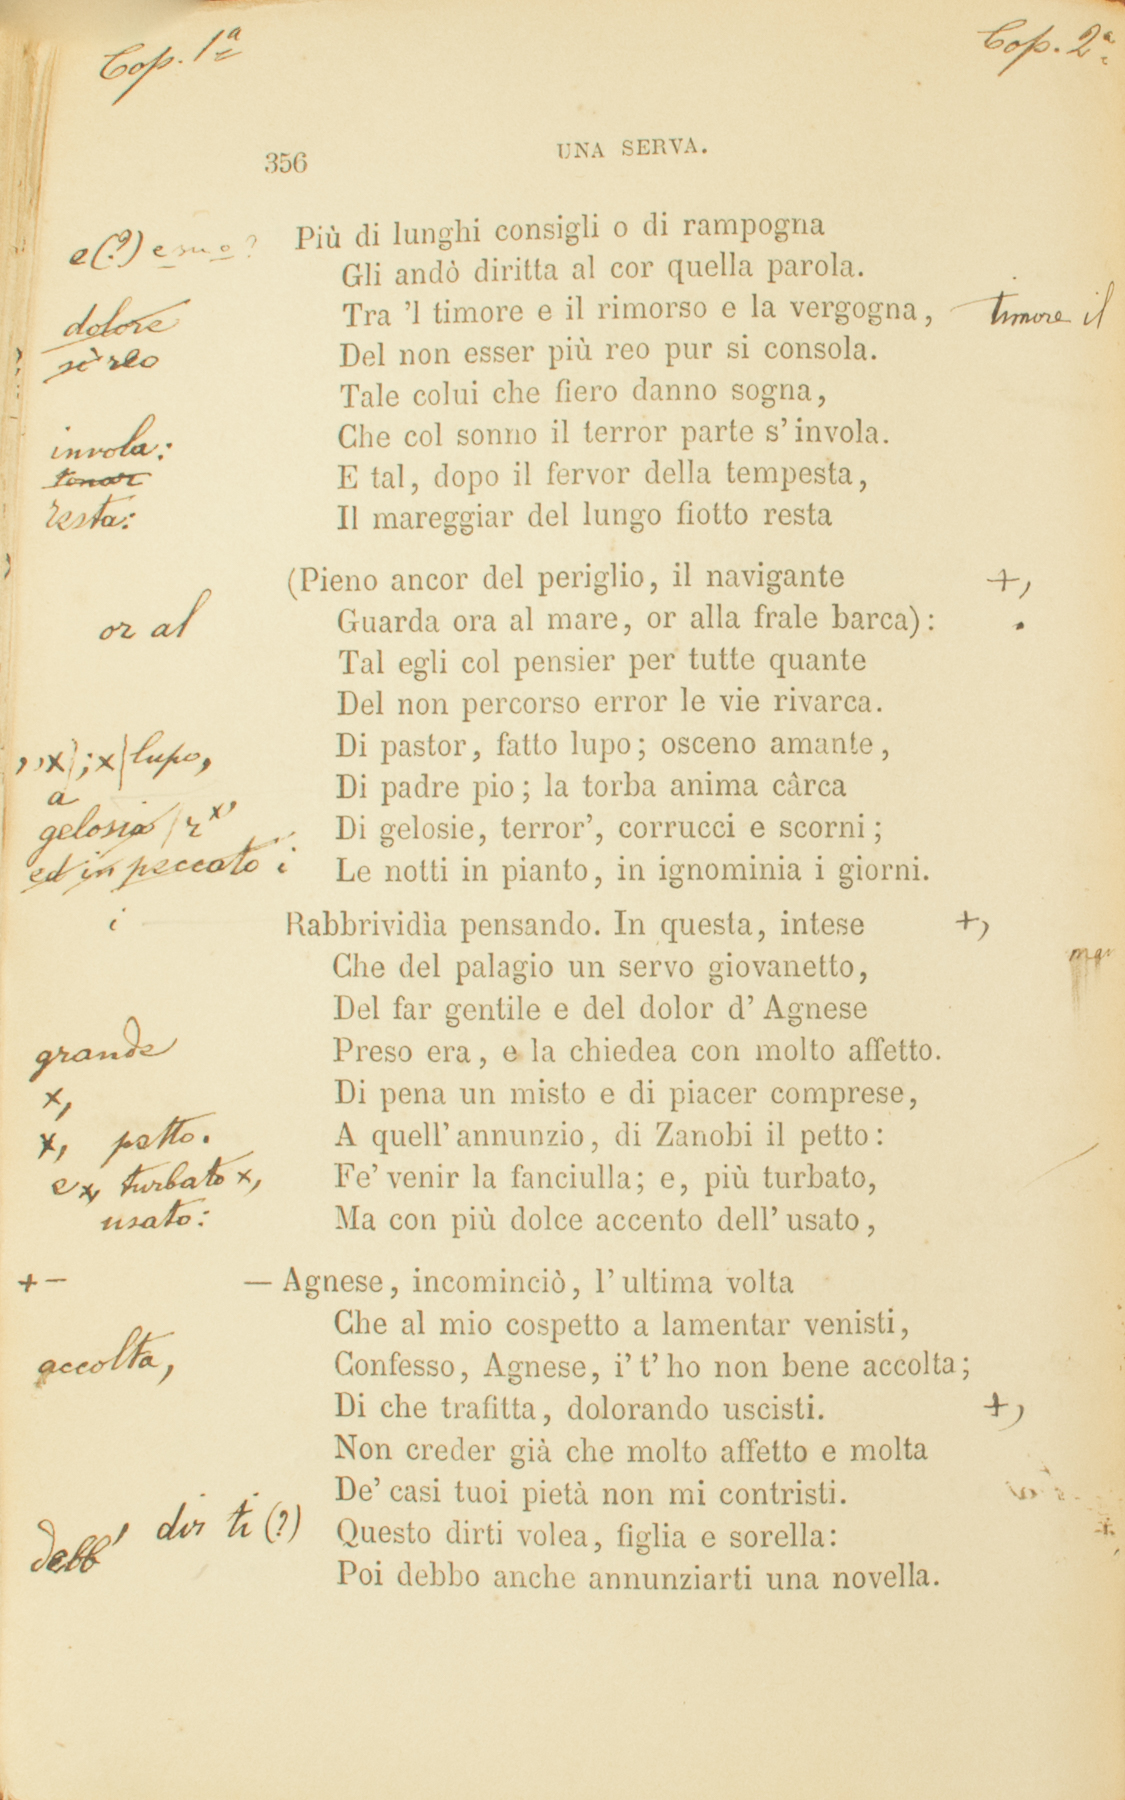 Cop. 1ª
Cop. 2ª
356 UNA SERVA.
e(?) e su o ? Più di lunghi consigli o di rampogna
Gli andò diritta al cor quella parola.
dolore Tra 'l timore e il rimorso e la vergogna, timore il
sì reo Del non esser più reo pur si consola.
Tale colui che fiero danno sogna,
invola: Che col sonno il terror parte s' invola.
E tal, dopo il fervor della tempesta,
resta: Il mareggiar del lungo fiotto resta
(Pieno ancor del periglio, il navigante +,
or al Guarda ora al mare, or alla frale barca): .
Tal egli col pensier per tutte quante
Del non percorso error le vie rivarca.
,,x) ;x| lupo, Di pastor, fatto lupo; osceno amante,
a Di padre pio; la torba anima cârca
gelosia /r x, Di gelosie, terror', corrucci e scorni;
ed in peccato i Le notti in pianto, in ignominia i giorni.
i Rabbrividìa pensando. In questa, intese +,
Che del palagio un servo giovanetto,
Del far gentile e del dolor d' Agnese
grande Preso era, e la chiedea con molto affetto.
x, Di pena un misto e di piacer comprese,
x, petto. A quell' annunzio, di Zanobi il petto:
e x, turbato x, Fe' venir la fanciulla; e, più turbato,
usato: Ma con più dolce accento dell' usato,
+ — — Agnese, incominciò, l' ultima volta
Che al mio cospetto a lamentar venisti,
accolta, Confesso, Agnese, i' t' ho non bene accolta;
Di che trafitta, dolorando uscisti. +,
Non creder già che molto affetto e molta
De' casi tuoi pietà non mi contristi.
dir ti (?) Questo dirti volea, figlia e sorella:
debb' Poi debbo anche annunziarti una novella.